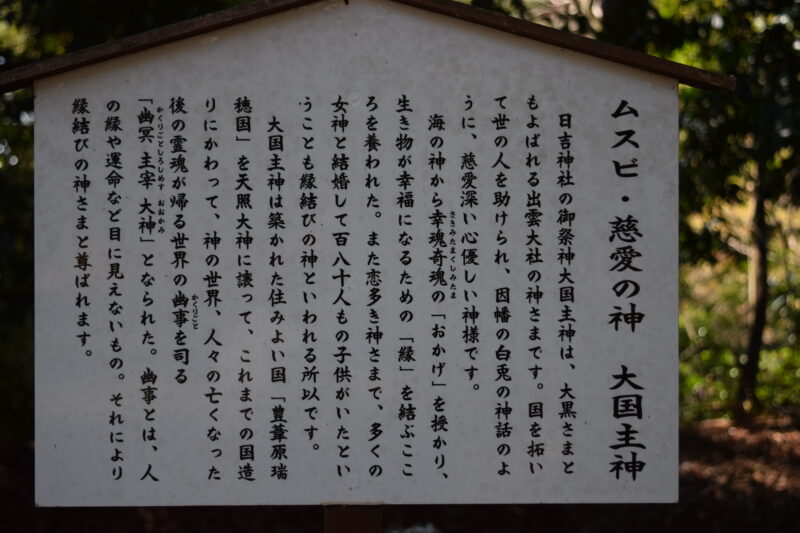 ムスビ・慈愛の神　大国主神
日吉神社の御祭神大国主神は、大黒さまと
もよばれる出雲大社の神さまです。国を拓い
て世の人を助けられ、因幡の白兎の神話のよ
うに、慈愛深い心優しい神様です。
海の神から幸魂奇魂の「おかげ」を授かり、
さきみたまくしみたま
生き物が幸福になるための「縁」を結ぶここ
ろを養われた。また恋多き神さまで、多くの
女神と結婚して百八十人もの子供がいたとい
うことも縁結びの神といわれる所以です。
大国主神は築かれた住みよい国「豊葦原瑞
穂国」を天照大神に譲って、これまでの国造
りにかわって、神の世界、人々の亡くなった
後の霊魂が帰る世界の幽事を司る
かくりごと
「幽冥主宰大神」となられた。幽事とは、人
かくりごとしろしめす おおかみ
の縁や運命など目に見えないもの。それにより
縁結びの神さまと尊ばれます。